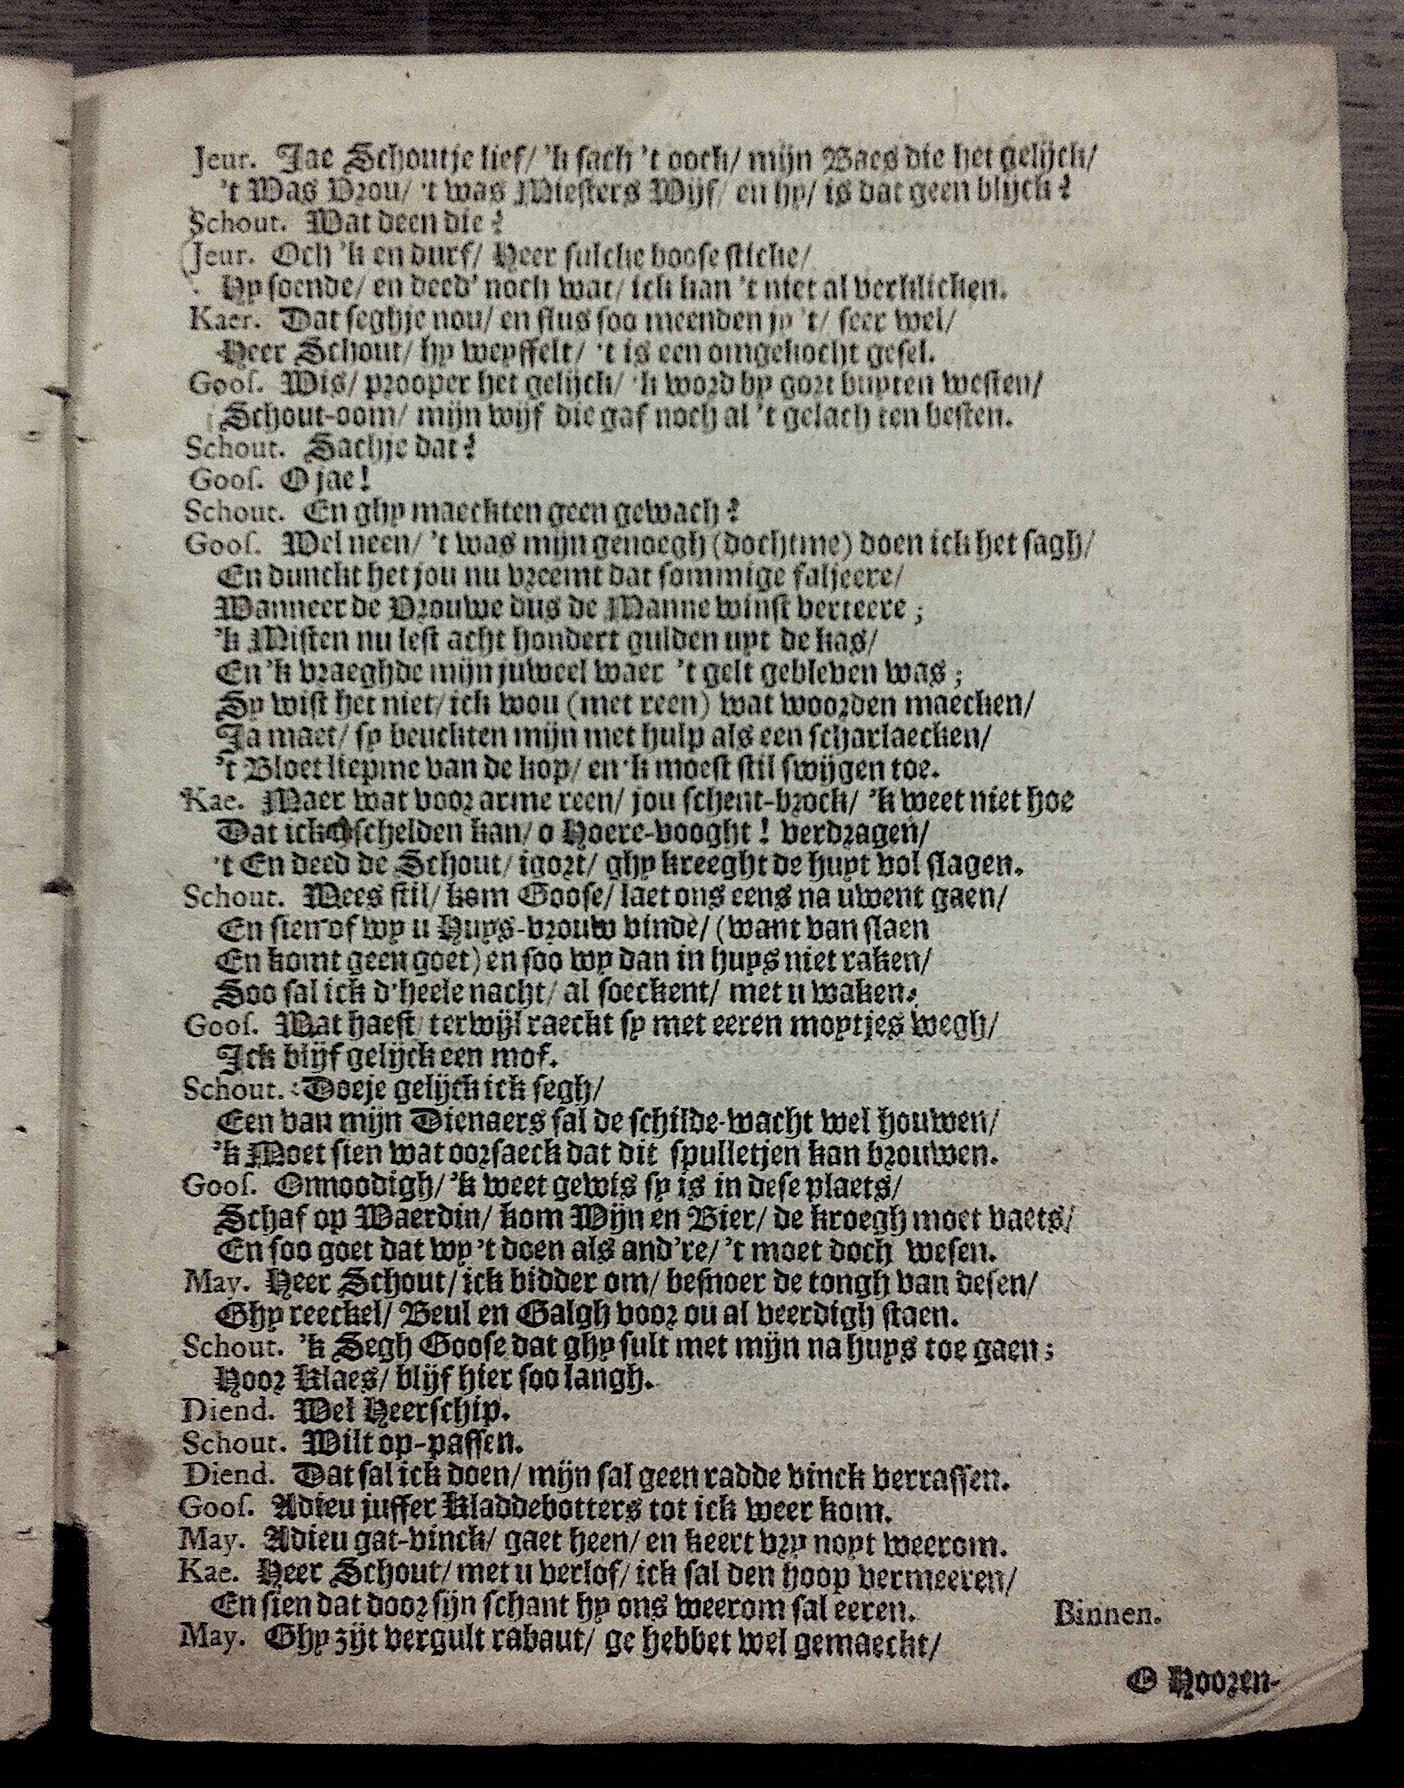 Jeur. Jae Schoutje lief/ 'k sach 't oock/ mijn Baes die het gelijck/
't Was Vrou/ 't was Miesters Wijf/ en hy/ is dat geen blijck?
Schout. Wat deen die?
Jeur. Och 'k en durf/ Heer sulcke boose sticke/
Hy soende/ en deed' noch wat/ ick kan 't niet al verklicken.
Kaer. Dat seghje nou/ en flus soo meenden jy 't/ seer wel/
Heer Schout/ hy weyffelt/ 't is een omgekocht gesel.
Gooſ. Wis/ prooper het gelijck/ 'k word by gort buyten westen/
Schout-oom/ mijn wijf die gaf noch al 't gelach ten besten.
Schout. Sachje dat?
Gooſ. O jae!
Schout. En ghy maeckten geen gewach?
Gooſ. Wel neen/ 't was mijn genoegh (dochtme) doen ick het sagh/
En dunckt het jou nu vreemt dat sommige faljeere/
Wanneer de Vrouwe dus de Manne winst verteere;
'k Misten nu lest acht hondert gulden uyt de kas/
En 'k vraeghde mijn juweel waer 't gelt gebleven was;
Sy wist het niet/ ick wou (met reen) wat woorden maecken/
Ja maer/ sy beuckten mijn met hulp als een scharlaecken/
't Bloet liepme van de kop/ en 'k moest stil swijgen toe.
Kae. Maer wat voor arme reen/ jou schent-brock/ 'k weet niet hoe
Dat ick schelden kan/ o Hoere-vooght! verdragen/
't En deed de Schout/ igort/ ghy kreeght de huyt vol slagen.
Schout. Wees stil/ kom Goose/ laet ons eens na uwent gaen/
En sien of wy u Huys-vrouw vinde/ (want van slaen
En komt geen goet) en soo wy dan in huys niet raken/
Soo sal ick d'heele nacht/ al soeckent/ met u waken.
Gooſ. Wat haest/ terwijl raeckt sy met eeren moytjes wegh/
Ick blijf gelijck een mof.
Schout. Doeje gelijck ick segh/
Een van mijn Dienaers sal de schilde-wacht wel houwen/
'k Moet sien wat oorsaeck dat dit spulletjen kan brouwen.
Gooſ. Onnoodigh/ 'k weet gewis sy is in dese plaets/
Schaf op Waerdin/ kom Wijn en Bier/ de kroegh moet vaets/
En soo goet dat wy 't doen als and're/ 't moet doch wesen.
May. Heer Schout/ ick bidder om/ besnoer de tongh van desen/
Ghy reeckel/ Beul en Galgh voor ou al veerdigh staen.
Schout. 'k Segh Goose dat ghy sult met mijn na huys toe gaen;
Hoor Klaes/ blijf hier soo langh.
Diend. Wel Heerschip.
Schout. Wilt op-passen.
Diend. Dat sal ick doen/ mijn sal geen radde vinck verrassen.
Gooſ. Adieu juffer Kladdebotters tot ick weer kom.
May. Adieu gat-vinck/ gaet heen/ en keert vry noyt weerom.
Kae. Heer Schout/ met u verlof/ ick sal den hoop vermeeren/
En sien dat door sijn schant hy ons weerom sal eeren. Binnen.
May. Ghy zijt vergult rabaut/ ge hebbet wel gemaeckt/
O Hooren-